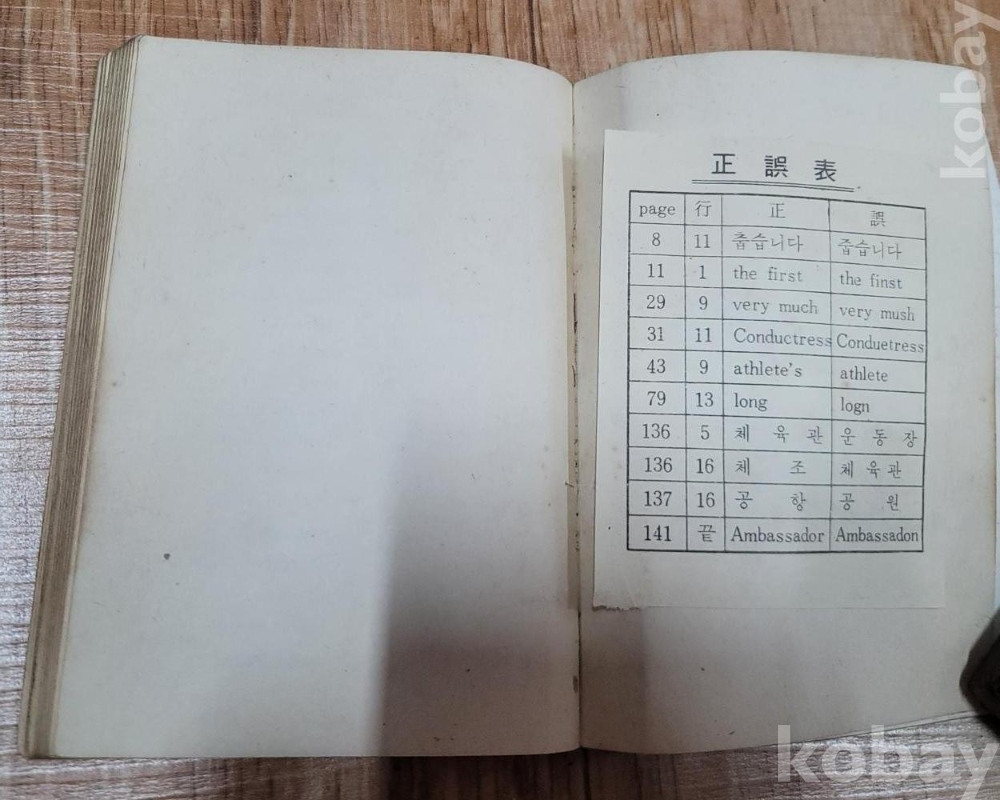 正 誤 表
page 行 正 誤
8 11 춥습니다 줍습니다
11 1 the first the finst
29 9 very much very mush
31 11 Conductress Conduetress
43 9 athlete's athlete
79 13 long logn
136 5 체 육 관 운 동 장
136 16 체 조 체 육 관
137 16 공 항 공 원
141 끝 Ambassador Ambassadon
kobay
kobay